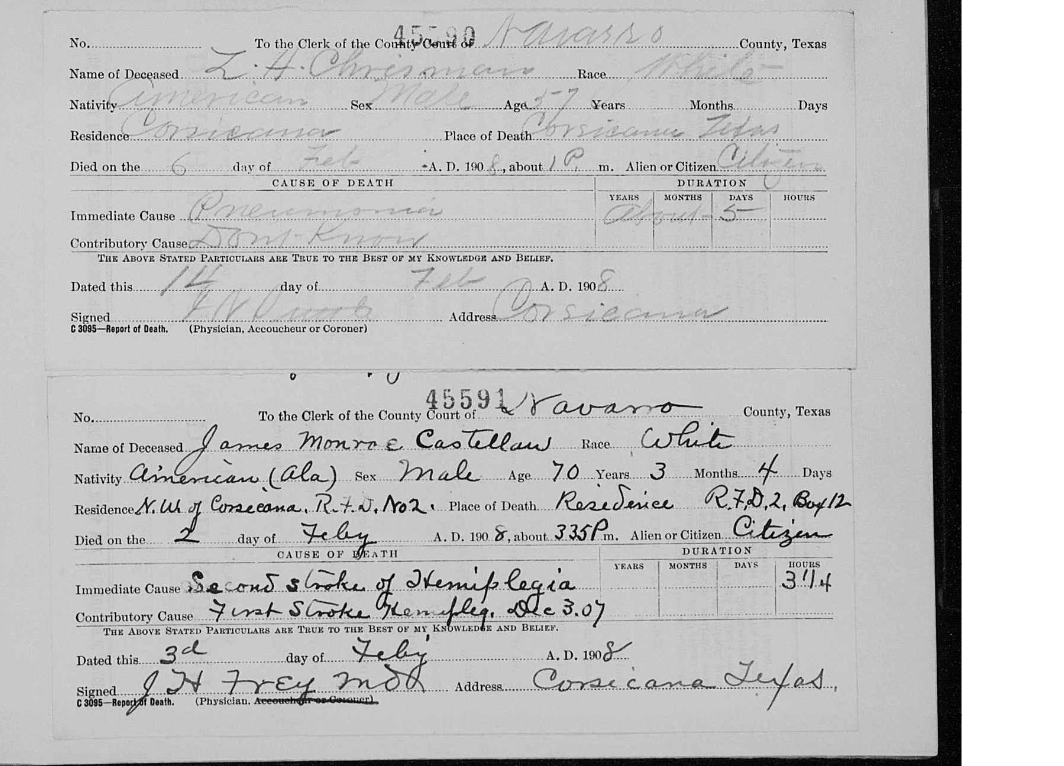 45590
No. To the Clerk of the County Court of Navarro County, Texas
Name of Deceased L. H. Chrisman Race White
Nativity American Sex Male Age 57 Years Months Days
Residence Corsicana Place of Death Corsicana Texas
Died on the 6 day of Feb A. D. 1908, about 1 P. m. Alien or Citizen Citizen
CAUSE OF DEATH DURATION
YEARS MONTHS DAYS HOURS
Immediate Cause Pneumonia About 5
Contributory Cause Dont Know
THE ABOVE STATED PARTICULARS ARE TRUE TO THE BEST OF MY KNOWLEDGE AND BELIEF.
Dated this 14 day of Feb A. D. 1908
Signed Address Corsicana
C 3095—Report of Death. (Physician, Accoucheur or Coroner)
45591
No. To the Clerk of the County Court of Navarro County, Texas
Name of Deceased James Monroe Castellaw Race White
Nativity American (Ala) Sex Male Age 70 Years 3 Months 4 Days
Residence N.W. of Corsecana, R.F.D. No 2. Place of Death Resedence R.F.D. 2, Box 12
Died on the 2 day of Feby A. D. 1908, about 335 P. m. Alien or Citizen Citizen
CAUSE OF DEATH DURATION
YEARS MONTHS DAYS HOURS
Immediate Cause Second stroke of Hemiplegia 3 1/4
Contributory Cause First Stroke Hemipleg. Dec 3.07
THE ABOVE STATED PARTICULARS ARE TRUE TO THE BEST OF MY KNOWLEDGE AND BELIEF.
Dated this 3d day of Feby A. D. 1908
Signed J H Frey Address Corsicana Texas,
C 3095—Report of Death. (Physician, Accoucheur or Coroner)